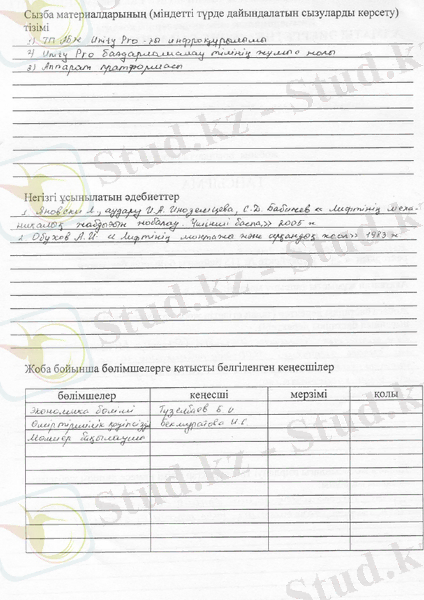 Сызба материалдарының (міндетті түрде дайындалатын сызуларды көрсету)
тізімі
1) ТП АБЖ Unity Pro-ны инфрақұрылымы
2) Unity Pro бағдарламалау тілінің жұмыс жолы
3) Аппарат платформасы
Негізгі ұсынылатын әдебиеттер
1. Яновски Л., аудару И.А. Иноземцева, С.Д. Бабичев « Лифтінің меха-
никалық жабдығын жобалау. Үшінші баспа,» 2005 ж
2. Обухов А.И. « Лифтінің монтажы және жолы» 1983 ж
Жоба бойынша бөлімшелерге қатысты белгіленген кеңесшілер
бөлімшелер кеңесші мерзімі қолы
Экономика бөлімі Тузелбаев Б И
Өміртіршілік қауіпсізд Бекмуратова
Мөлшер бақылаушы
Stud.kz - Stud.kz
Stud.kz - Stud.kz
Stud.kz - Stud.kz
Stud.kz